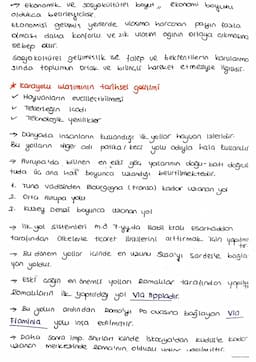 → Ekonomik ve sosyokültürel boyut, ekonomi boyutu
oldukça belirleyicidir.
Ekonomisi gelişmiş yerlerde ulaşıma harcanan payın fazla
olması daha konforlu ve sık ulaşım ağının ortaya çıkmasına
sebep olur.
Sosyokültürel gelişmişlik ise talep ve beklentilerin karşılanma
sında toplumun ortak ve bilinçli hareket etmesiyle ilgilidir.
* Karayolu ulaşımının tarihsel gelişimi
✓ Hayvanların evcilleştirilmesi
✓ Tekerleğin icadı
✓ Teknolojik yenilikler
→ Dünyada insanların kullandığı ilk yollar hayvan izleridir.
Bu yolların diğer adı patika / keçi yolu adıyla hala bulunur
→ Avrupa'da bilinen en eski göç yollarının doğu-batı doğrul
tuda üç ana hat boyunca uzandığı belirtilmektedir.
1. Tuna vadisinden Bourgogna (Fransa) kadar uzanan yol
2. Orta Avrupa yolu
3. Kuzey Deniz boyunca uzanan yol
→ İlk yol sistemleri m.ö 7.yyda Asur kralı Esarhaddon
tarafından ülkelerle ticaret ilişkilerini arttırmak için yapılmıştır.
→ Bu dönem yollar içinde en uzunu Susa'yı Sardes'le bağla
yan yoldur.
→ Eski çağın en önemli yolları Romalılar tarafından yapılmıştır
Romalıların ilk yaptırdığı yol Via Appiadır.
→ Bu yolun ardından Roma'yı Po ovasına bağlayan Via
Flaminia yolu inşa edilmiştir.
→ Daha sonra İmp. sınırları içinde İskoçya'dan Kudüs'e kadar
uzanan merkezinde Roma'nın olduğu